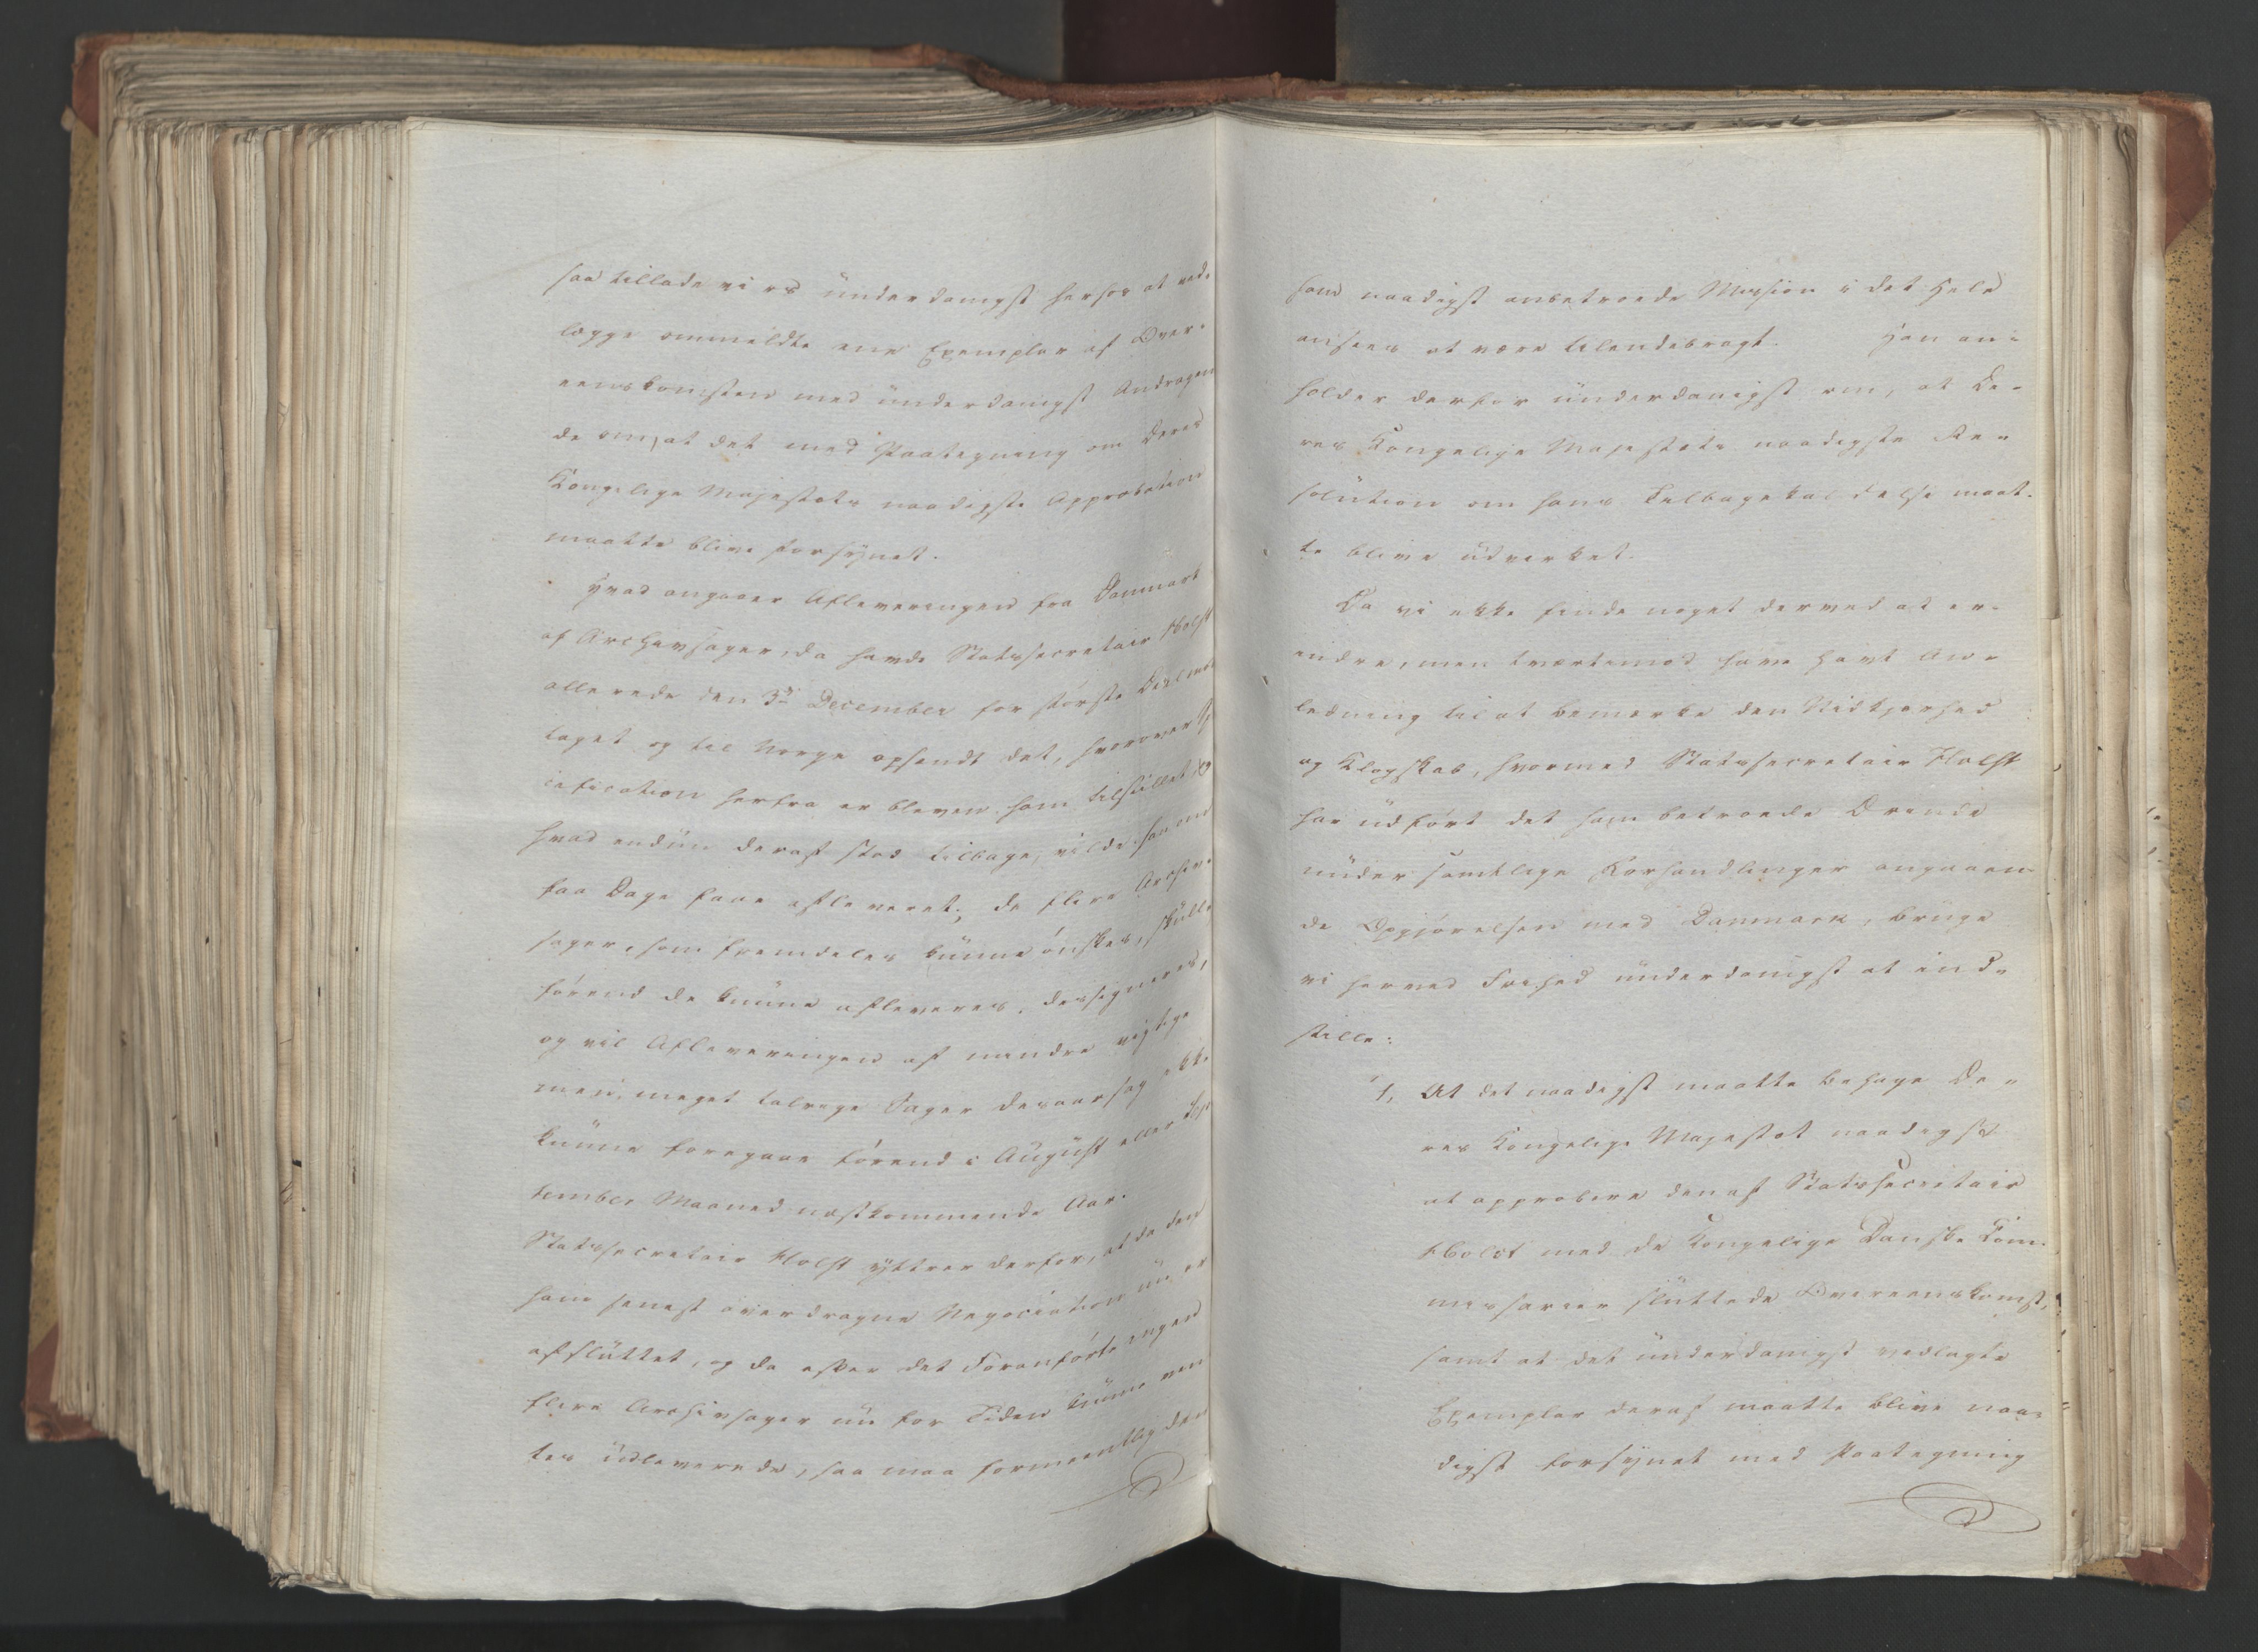 saa tillade vi os underdanigst herhos at ved-
lægge ommeldte ene Exemplar af Over-
eenskomsten med underdanigst Andragen
de om, at det med Paategning om Deres
Kongelige Majestæts naadigste Approbation
maatte blive forsynet.
Hvad angaaer Afleveringen fra Danmark
af Archivsager, da havde Statssecretair Holst
allerede den 3die December for største Delen mod-
taget og til Norge opsendt det, hvorover
cification herfra er bleven ham tilstillet, og
hvad endnu deraf stod tilbage, vilde han om
faa Dage faae afleveret; de flere Archiv-
sager, som fremdeles kunne ønskes, skulle
førend de kunne afleveres, dessigneres,
og vil Afleveringen af mindre vigtige
men meget talrige Sager desaarsag ikke
kunne foregaae førend i August eller Sep
tember Maaned næstkommende Aar.
Statssecretair Holst yttrer derfor, at da den
ham senest overdragne Negociation nu er
afsluttet, og da efter det Foranførte ingen
flere Archivsager nu for Tiden kunne ven
tes udleverede, saa maa formeentlig den
ham naadigst anbetroede Mission i det Hele
ansees at være tilendebragt. Han an-
holder derfor underdanigst om, at De-
res Kongelige Majestæts naadigste Re-
solution om hans Tilbagekaldelse maat-
te blive udvirket.
Da vi ikke finde noget derved at er-
indre, men tvertimod have havt An-
ledning til at bemærke den Nidkjerhed
og Klogskab, hvormed Statssecretair Holst
har udført det ham betroede Ærende
under samtlige Forhandlinger angaaen-
de Opgjørelsen med Danmark, bruge
vi herved Frihed underdanigst at ind-
stille:
1, At det naadigst maatte behage De-
res Kongelige Majestæt naadigst
at approbere den af Statssecretair
Holst med de Kongelige Danske Com-
missarier sluttede Overeenskomst,
samt at det underdanigst vedlagte
Exemplar deraf maatte blive naa-
digst forsynet med Paategning